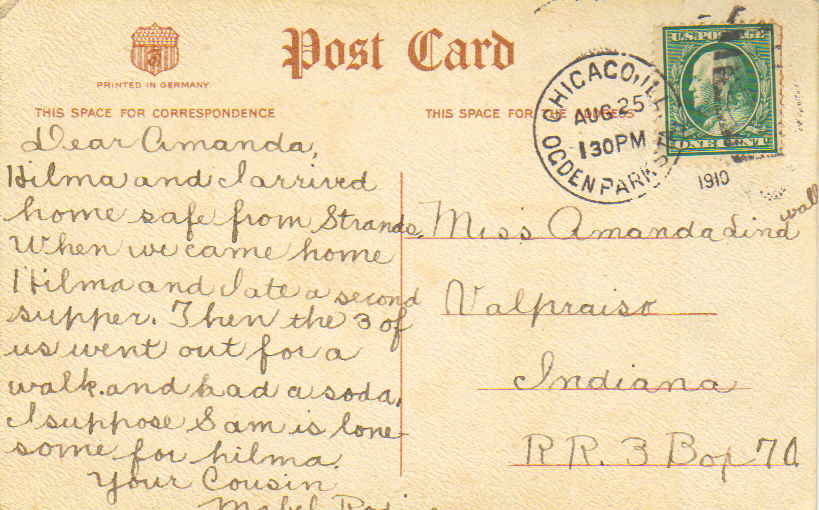 Post Card
PRINTED IN GERMANY
THIS SPACE FOR CORRESPONDENCE
THIS SPACE FOR THE ADDRESS
U.S. POSTAGE
ONE CENT
CHICAGO, ILL.
AUG 25
130PM
OGDEN PARK STA.
1910
Dear Amanda,
Hilma and I arrived
home safe from Strands,
When we came home
Hilma and I ate a second
supper. Then the 3 of
us went out for a
walk. and had a soda.
I suppose Sam is lone-
some for hilma.
Your Cousin
Mabel
Miss Amanda Lind
wall
Valpraiso
Indiana
R R. 3 Box 70